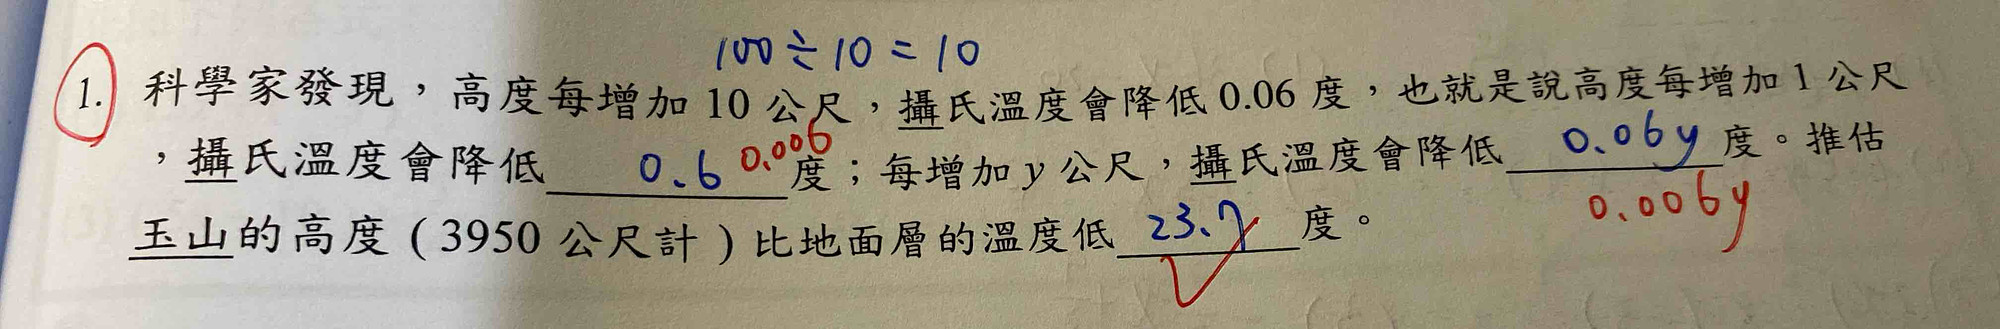 100÷10=10
1. 科學家發現，高度每增加 10 公尺，攝氏溫度會降低 0.06 度，也就是說高度每增加 1 公尺
，攝氏溫度會降低 0.6 0.006 度；每增加 y 公尺，攝氏溫度會降低 0.06y 度。推估
0.006y
玉山的高度（3950 公尺計）比地面層的溫度低 23.7 度。